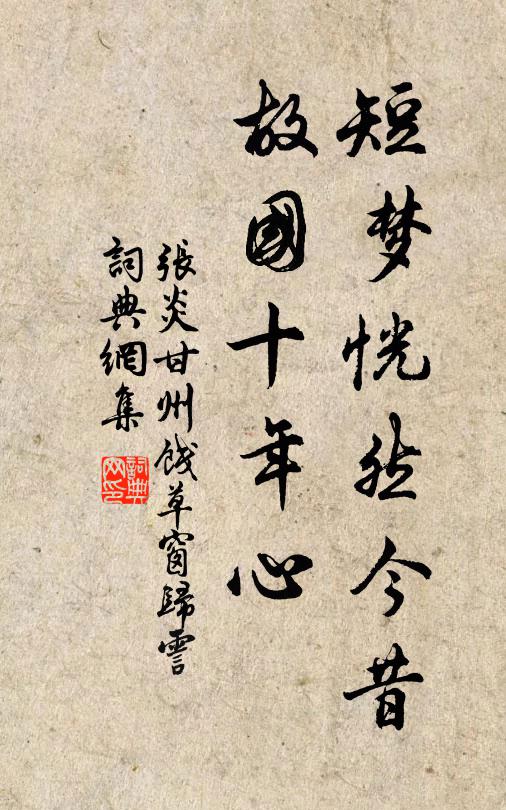 短梦恍然今昔
故國十年心
張炎甘州餞草窗歸霅
詞典網集
詞典网印